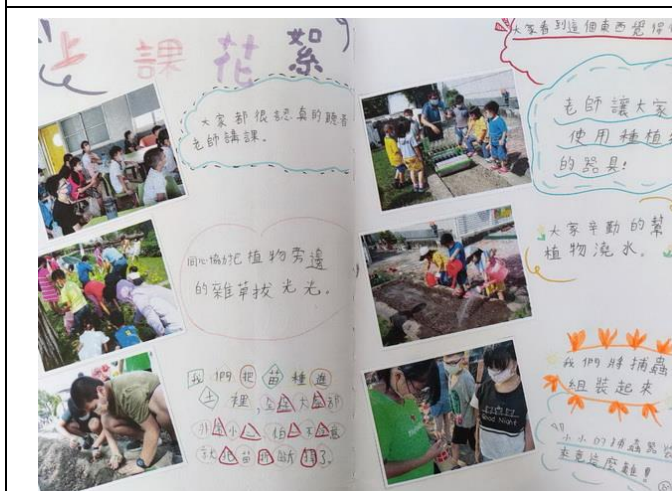 上課花絮
大家都很認真的聽著
老師講課。
同心協力把植物旁邊
的雜草拔光光。
我們把苗種進
土裡,
大家看到這個東西覺得
老師讓大家
使用種植
的器具!
大家辛勤的幫
植物澆水。
我們將捕蟲
組裝起來
小小的捕蟲器
來竟這麼難!
Good Night